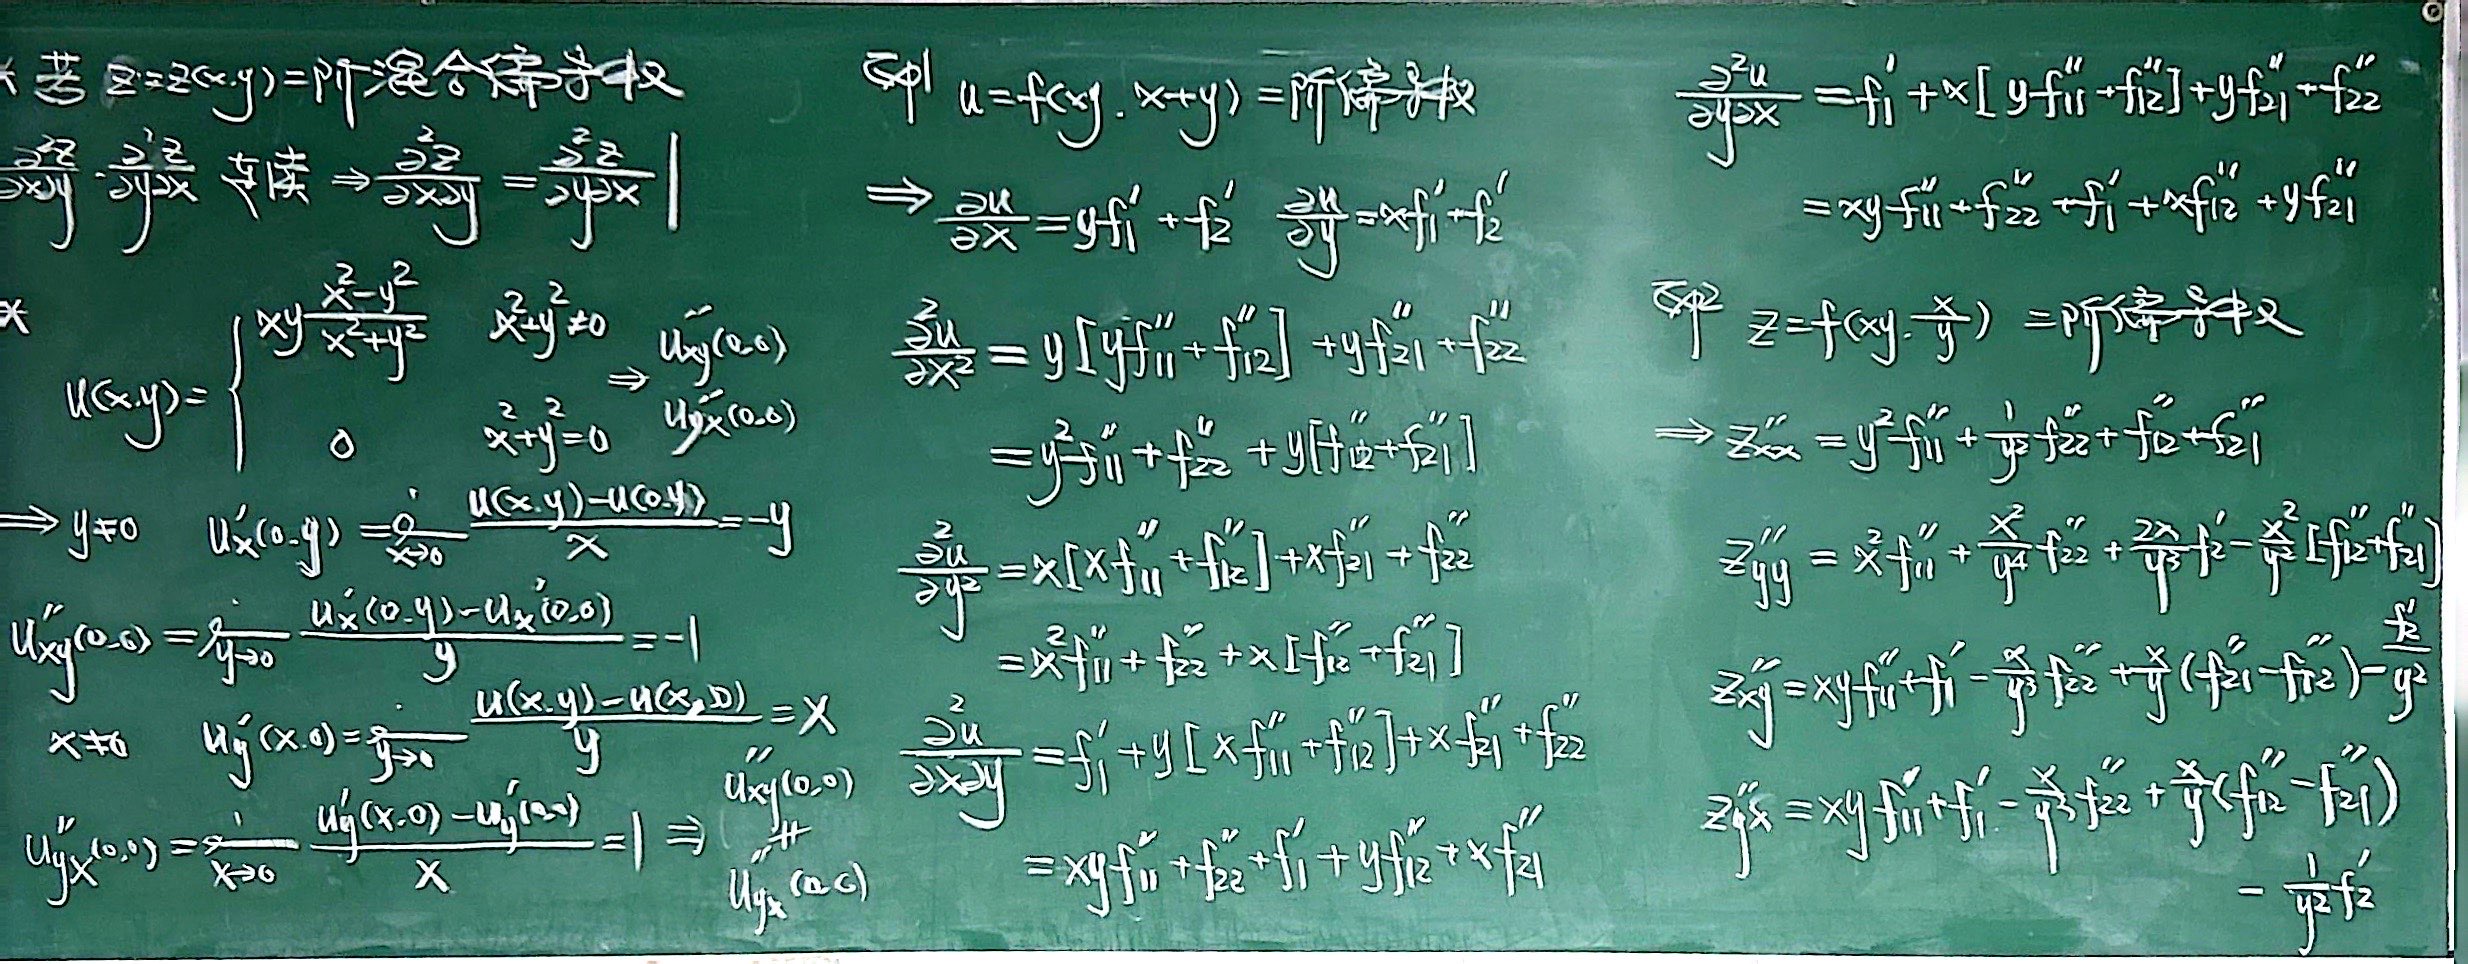 * 若 z=z(x.y)=阶混合偏导数
∂²z/∂x∂y . ∂²z/∂y∂x 连续 ⇒ ∂²z/∂x∂y = ∂²z/∂y∂x |
*
u(x.y)= { xy (x²-y²)/(x²+y²)   x²+y²≠0
0   x²+y²=0
⇒ u″xy(0.0)
u″yx(0.0)
⇒ y≠0   u′x(0.y) = lim x→0 (u(x.y)-u(0.y))/x = -y
u″xy(0.0) = lim y→0 (u′x(0.y)-u′x(0.0))/y = -1
x≠0   u′y(x.0) = lim y→0 (u(x.y)-u(x.0))/y = x
u″yx(0.0) = lim x→0 (u′y(x.0)-u′y(0.0))/x = 1 ⇒ u″xy(0.0) ≠ u″yx(0.0)
例1 u=f(xy.x+y) =阶偏导数
⇒ ∂u/∂x = yf′1+f′2   ∂u/∂y = xf′1+f′2
∂²u/∂x² = y[yf″11+f″12]+yf″21+f″22
= y²f″11+f″22+y[f″12+f″21]
∂²u/∂y² = x[xf″11+f″12]+xf″21+f″22
= x²f″11+f″22+x[f″12+f″21]
∂²u/∂x∂y = f′1+y[xf″11+f″12]+xf″21+f″22
= xyf″11+f″22+f′1+yf″12+xf″21
∂²u/∂y∂x = f′1+x[yf″11+f″12]+yf″21+f″22
= xyf″11+f″22+f′1+xf″12+yf″21
例2 z=f(xy.x/y) =阶偏导数
⇒ z″xx = y²f″11+(1/y²)f″22+f″12+f″21
z″yy = x²f″11+(x²/y⁴)f″22+(2x/y³)f′2-(x²/y²)[f″12+f″21]
z″xy = xyf″11+f′1-(x/y³)f″22+(x/y)(f″21-f″12)-f′2/y²
z″yx = xyf″11+f′1-(x/y³)f″22+(x/y)(f″12-f″21)
-(1/y²)f′2